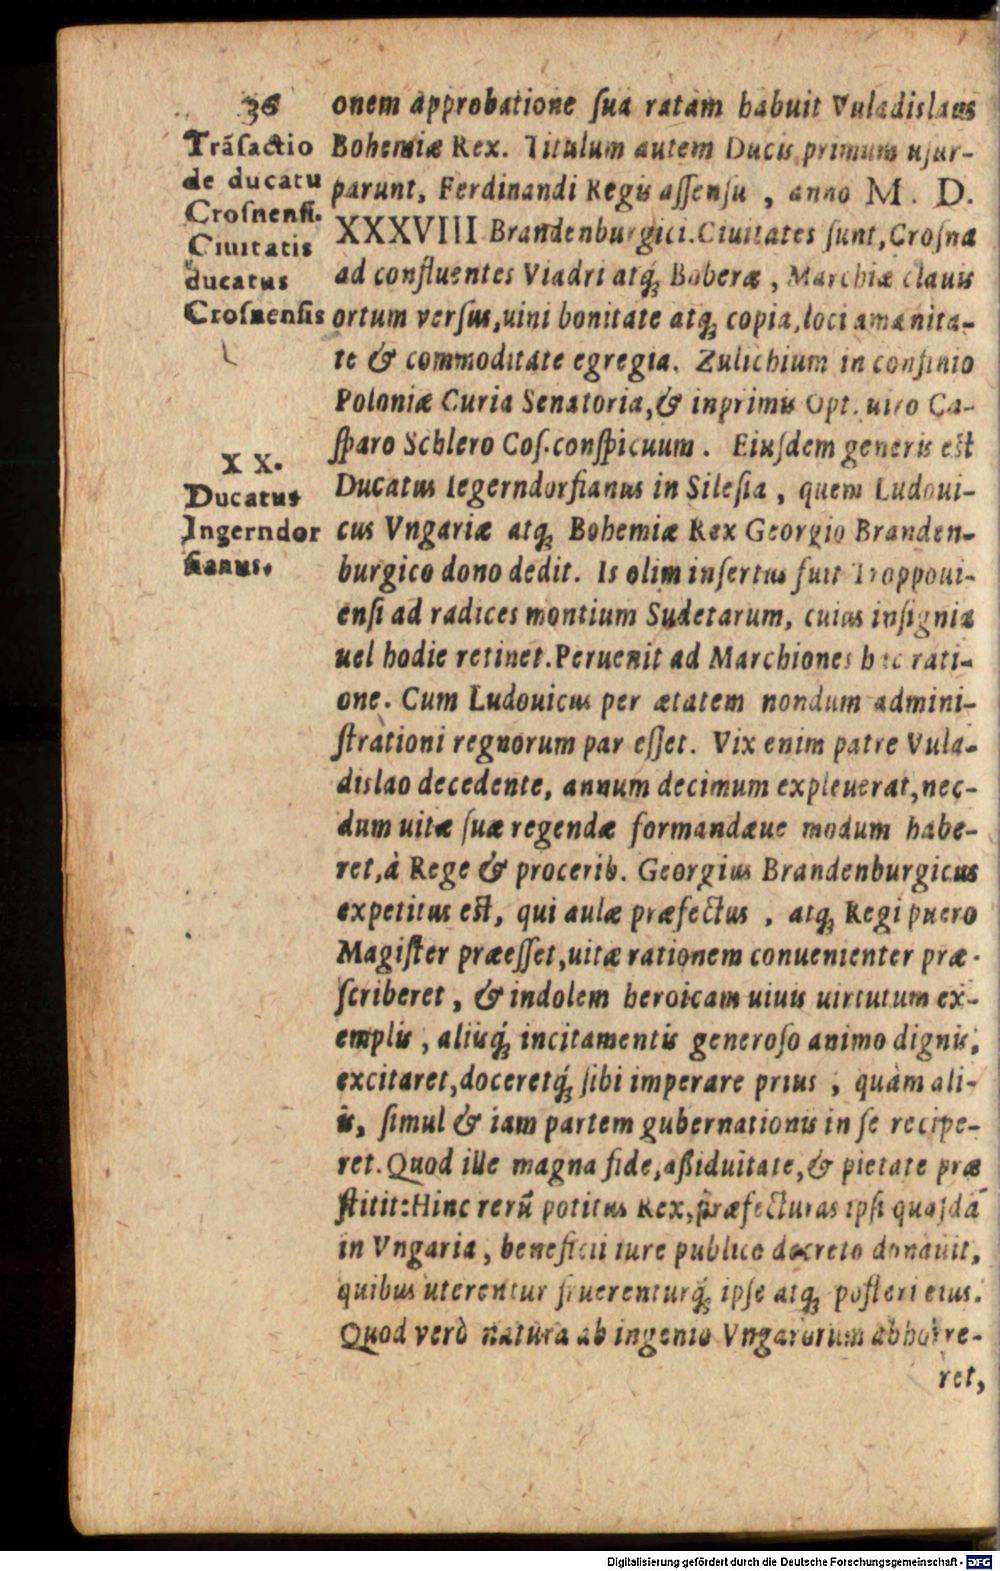 36
Trãſactio
de ducatu
Croſnenſi.
Ciuitatis
ducatus
Croſnenſis
X X.
Ducatus
Ingerndor
ſianus.
onem approbatione ſua ratam habuit Vuladislaus
Bohemiæ Rex. Titulum autem Ducis primum uſur-
parunt, Ferdinandi Regis aſſenſu , anno M. D.
XXXVIII Brandenburgici. Ciuitates ſunt, Croſna
ad confluentes Viadri atq; Boberæ , Marchiæ clauis
ortum verſus, uini bonitate atq; copia, loci amænita-
te & commoditate egregia. Zulichium in confinio
Poloniæ Curia Senatoria, & inprimis Opt. uiro Ca-
ſparo Schlero Coſ. conſpicuum . Eiuſdem generis eſt
Ducatus Iegerndorfianus in Sileſia , quem Ludoui-
cus Vngariæ atq; Bohemiæ Rex Georgio Branden-
burgico dono dedit. Is olim inſertus fuit Troppoui-
enſi ad radices montium Sudetarum, cuius inſignia
uel hodie retinet. Peruenit ad Marchiones hac rati-
one. Cum Ludouicus per ætatem nondum admini-
ſtrationi regnorum par eſſet. Vix enim patre Vula-
dislao decedente, annum decimum expleuerat, nec-
dum uitæ ſuæ regendæ formandæue modum habe-
ret, à Rege & procerib. Georgius Brandenburgicus
expetitus eſt, qui aulæ præfectus , atq; Regi puero
Magiſter præeſſet, uitæ rationem conuenienter præ-
ſcriberet , & indolem heroicam uiuis uirtutum ex-
emplis , aliisq́; incitamentis generoſo animo dignis,
excitaret, doceretq́; ſibi imperare prius , quàm ali-
is, ſimul & iam partem gubernationis in ſe recipe-
ret. Quod ille magna fide, aßiduitate, & pietate præ
ſtitit: Hinc rerũ potitus Rex, præfecturas ipſi quaſdã
in Vngaria , beneficii iure publico decreto donauit,
quibus uterentur fruerenturq́; ipſe atq; poſteri eius.
Quod verò natura ab ingenio Vngarorum abhorre-
ret,
Digitalisierung gefördert durch die Deutsche Forschungsgemeinschaft - DFG